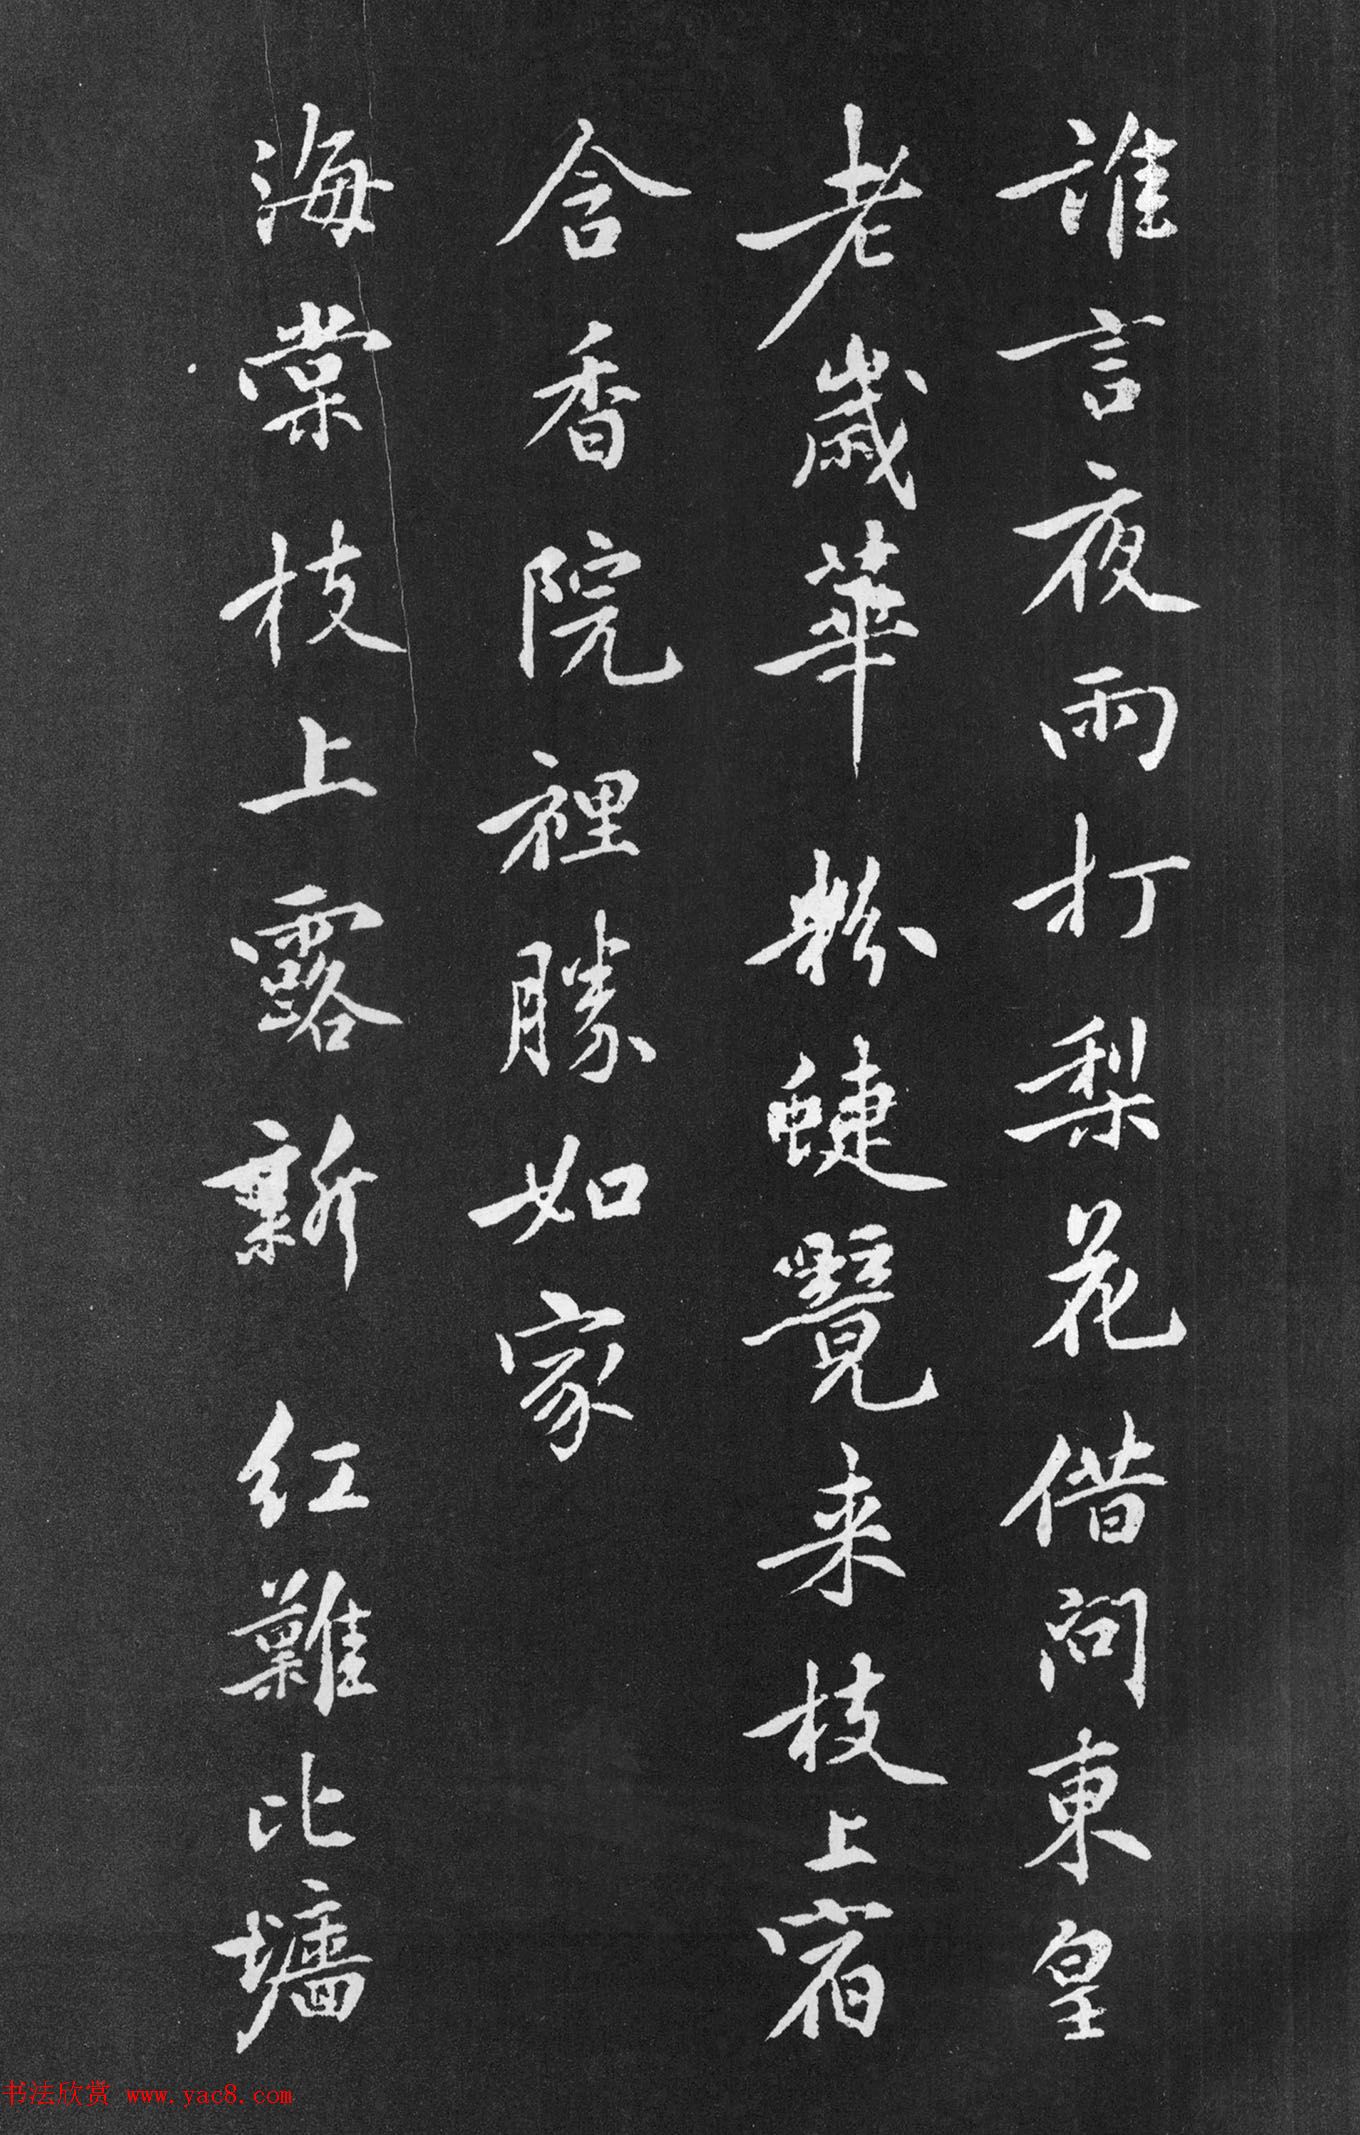 誰言夜雨打梨花借問東皇
老歲華粉蜨覺来枝上宿
含香院裡勝如家
海棠枝上露新红難比墻
书法欣赏 www.yac8.com